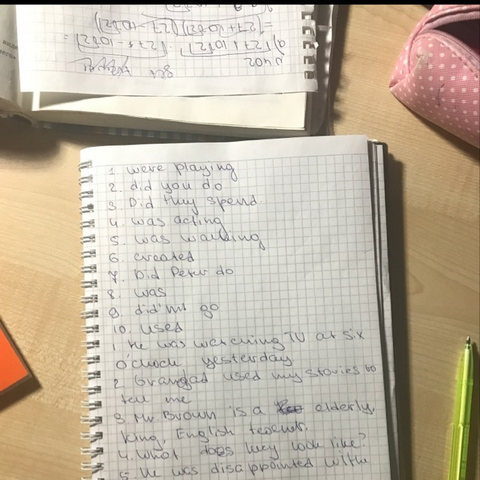 1. were playing
2. did you do
3. Did they spend
4. was acting
5. was walking
6. created
7. Did Peter do
8. was
9. did'nt go
10. used
1. He was watching TV at six
o'clock yesterday
2. Grandad used my stories to
tell me
3. Mr. Brown is a elderly,
king, English teacher.
4. What does they look like?
5. He was disappointed with